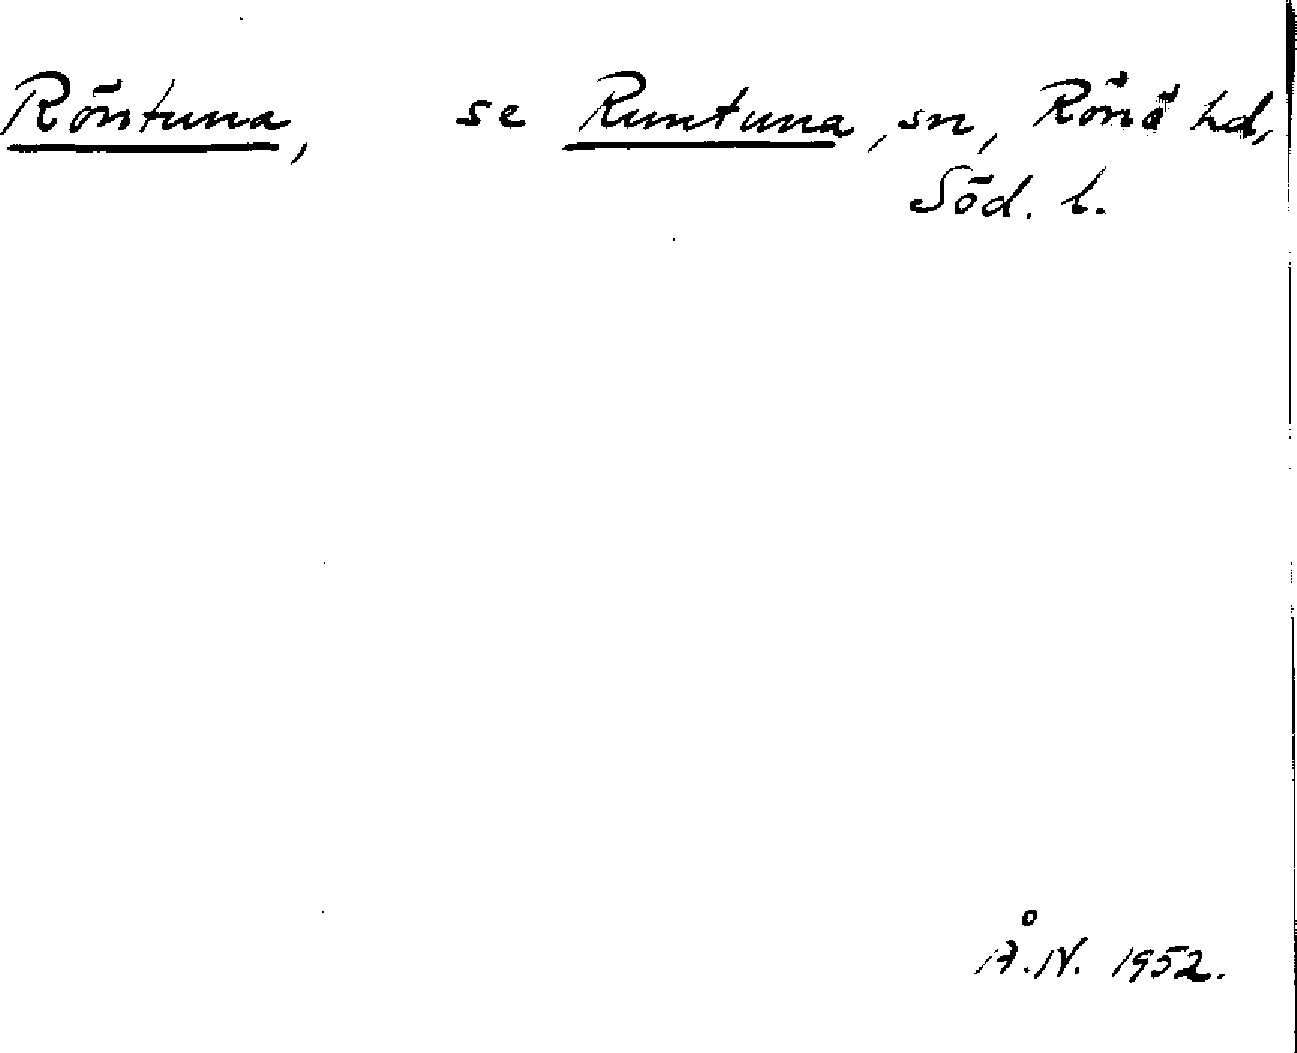 Röntuna, se Runtuna, sn, Rönö hd,
Söd. l.
Å.N. 1952.